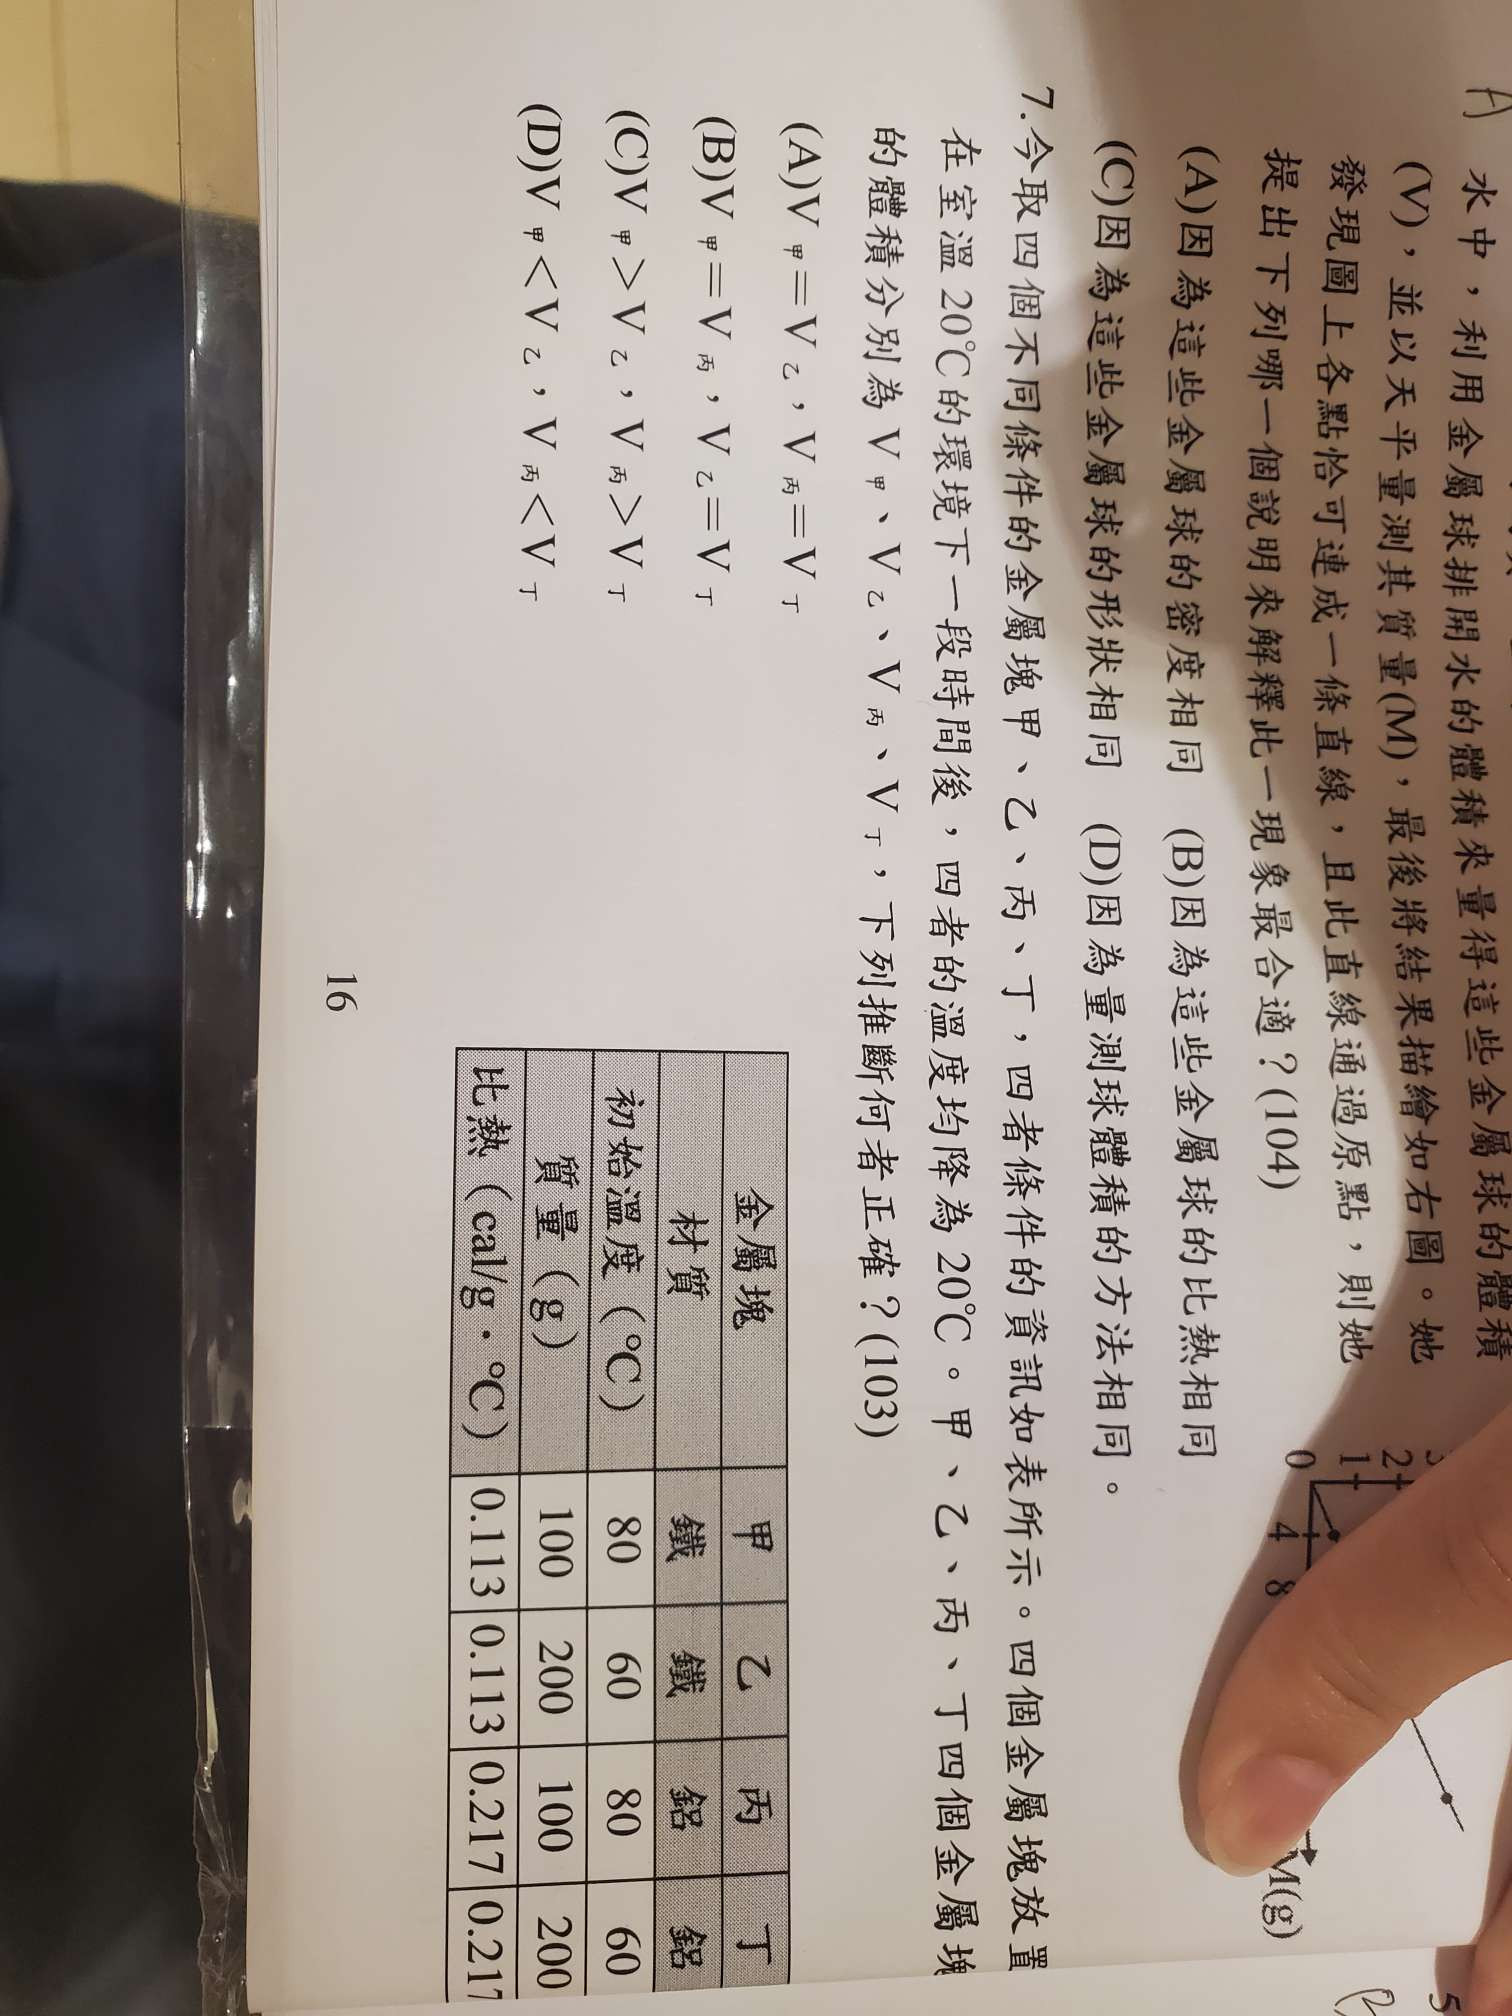 水中，利用金屬球排開水的體積來量得這些金屬球的體積
(V)，並以天平量測其質量(M)，最後將結果描繪如右圖。她
發現圖上各點恰可連成一條直線，且此直線通過原點，則她
提出下列哪一個說明來解釋此一現象最合適？(104)
2
1
0
4
8
M(g)
(A)因為這些金屬球的密度相同 (B)因為這些金屬球的比熱相同
(C)因為這些金屬球的形狀相同 (D)因為量測球體積的方法相同。
7.今取四個不同條件的金屬塊甲、乙、丙、丁，四者條件的資訊如表所示。四個金屬塊放置
在室溫 20℃的環境下一段時間後，四者的溫度均降為 20℃。甲、乙、丙、丁四個金屬塊
的體積分別為 V甲、V乙、V丙、V丁，下列推斷何者正確？(103)
(A)V甲＝V乙，V丙＝V丁
(B)V甲＝V丙，V乙＝V丁
(C)V甲＞V乙，V丙＞V丁
(D)V甲＜V乙，V丙＜V丁
金屬塊 甲 乙 丙 丁
材質 鐵 鐵 鋁 鋁
初始溫度（℃） 80 60 80 60
質量（g） 100 200 100 200
比熱（cal/g．℃） 0.113 0.113 0.217 0.217
16